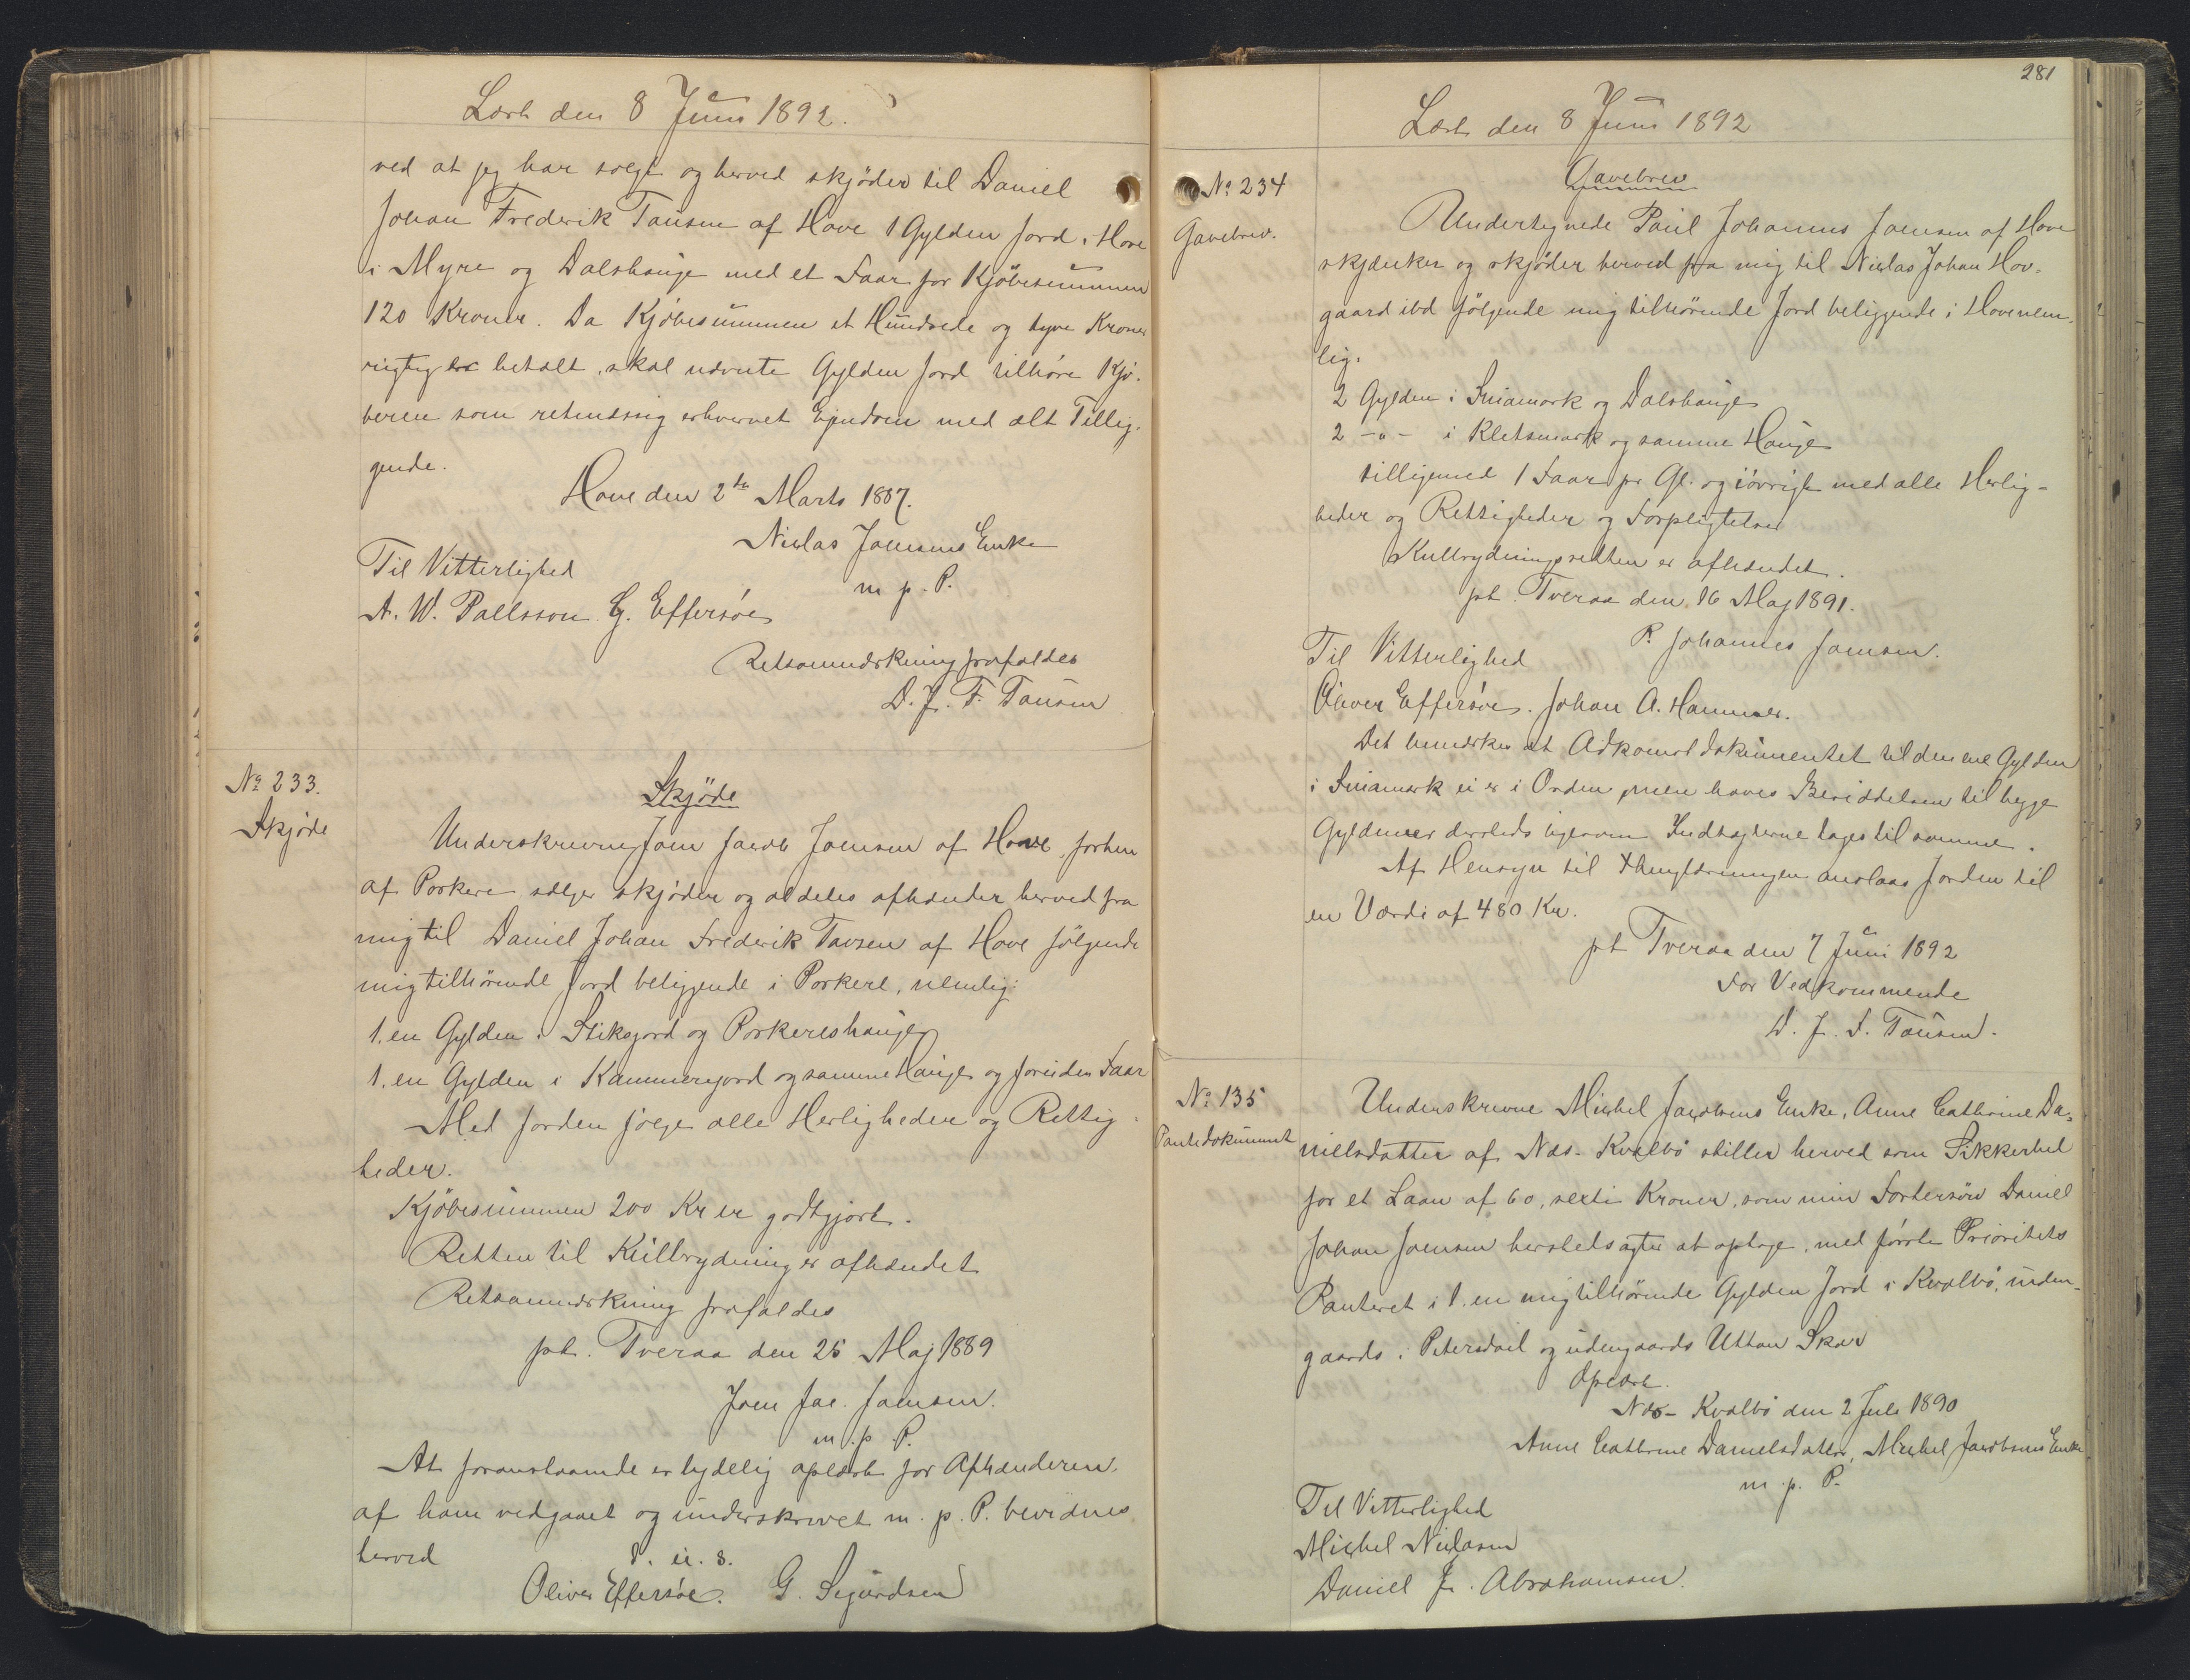 Læst den 8 Juni 1892.
ved at jeg har solgt og herved skjøder til Daniel
Johan Frederik Tausen af Hove 1 Gylden Jord i Hove
i Myre og Dalshauge med et Faar for Kjøbesummen
120 Kroner. Da Kjøbesummen et Hundrede og tyve Kroner
rigtig er betalt, skal nævnte Gylden Jord tilhøre Kjø-
beren som retmæssig erhvervet Ejendom med alt Tillig-
gende.
Hove den 2de Marts 1887.
Niclas Joensens Enke
m. p. P.
Til Vitterlighed
A. W. Pallsson G. Effersøe
Retsanmærkning frafaldes
D. J. F. Tausen
No 233.
Skjøde
Skjøde
Underskrevne Joen Jacob Joensen af Hove, forhen
af Porkere sælger skjøder og aldeles afhænder herved fra
mig til Daniel Johan Frederik Tavsen af Hove følgende
mig tilhørende Jord beliggende i Porkere, nemlig:
1. en Gylden i Stiksgord og Porkereshauge
1. en Gylden i Kammergord og samme Hauge og foruden Faar
Med Jorden følge alle Herligheder og Rettig-
heder.
Kjøbesummen 200 Kr er godtgjort.
Retten til Kulbrydning er afhændet
Retsanmærkning frafaldes
pt. Tveraa den 25 Maj 1889
Joen Jac. Joensen.
m. p. P.
At foranstaaende er tydelig oplæst for Afhænderen,
af ham vedgaaet og underskrevet m. p. P. bevidnes
herved
D. u. s.
Oliver Effersøe. G. Sigurdsen
281
Læst den 8 Juni 1892
No 234
Gavebrev.
Gavebrev
Undertegnede Paul Johannes Joensen af Hove
skjænker og skjøder herved fra mig til Niclas Johan Hov-
gaard ibd følgende mig tilhørende Jord beliggende i Hove nem-
lig:
2 Gylden i Suiamork og Dalshauge
2 -"- i Kletsmork og samme Hauge
tilligemed 1 Faar pr Gl. og iøvrigt med alle Herlig-
heder og Rettigheder og Forpligtelser
Kulbrydningsretten er afhændet.
pt. Tveraa den 16 Maj 1891.
P. Johannes Joensen.
Til Vitterlighed
Oliver Effersøe. Johan A. Hammer.
Det bemærkes at Adkomstdokumentet til den ene Gylden
i Suiamork ei er i Orden, men haves Besiddelsen til begge
Gyldener dersteds ligesom Indtægterne tages til samme.
Af Hensyn til anslaas Jorden til
en Værdi af 480 Kr.
pt Tveraa den 7 Juni 1892
For Vedkommende
D. J. F. Tausen.
No 135
Pantedokument
Underskrevne Michel Jacobsens Enke, Anne Cathrine Da-
nielsdatter af Næs-Kvalbø stiller herved som Sikkerhed
for et Laan af 60, sexti Kroner, som min Fostersøn Daniel
Johan Joensen herstedsagter at optage, med første Prioritets
Panteret i 1. en mig tilhørende Gylden Jord i Kvalbø, inden-
gaards i Petersdail og udengaards Uttan Skar
Oplæst.
Næs-Kvalbø den 2 Juli 1890
Anne Cathrine Danielsdatter, Michel Jacobsens Enke
m. p. P.
Til Vitterlighed
Michel Niclasen
Daniel J. Abrahamsen.